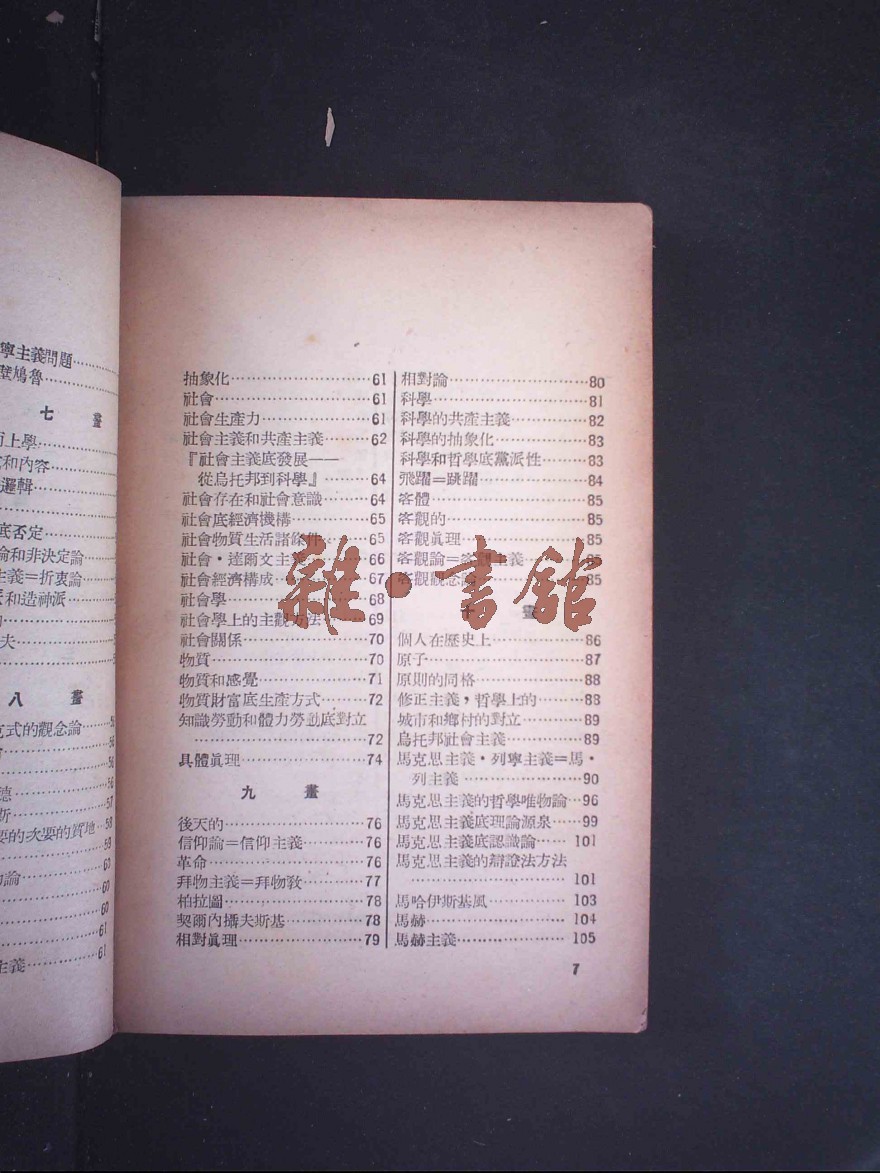 寧主義問題
壁鳩魯
七 畫
而上學
和內容
邏輯
底否定
論和非決定論
主義＝折衷論
和造神派
夫
八 畫
克式的觀念論
德
斯
要的·次要的質地 58
59
論 60
60
60
61
主義 61
抽象化 61
社會 61
社會生產力 61
社會主義和共產主義 62
『社會主義底發展——
從烏托邦到科學』 64
社會存在和社會意識 64
社會底經濟機構 65
社會物質生活諸條件 65
社會·達爾文主 66
社會經濟構成 67
社會學 68
社會學上的主觀方法 69
社會關係 70
物質 70
物質和感覺 71
物質財富底生產方式 72
知識勞動和體力勞動底對立
72
具體眞理 74
九 畫
後天的 76
信仰論＝信仰主義 76
革命 76
拜物主義＝拜物敎 77
柏拉圖 78
契爾內攝夫斯基 78
相對眞理 79
相對論 80
科學 81
科學的共產主義 82
科學的抽象化 83
科學和哲學底黨派性 83
飛躍＝跳躍 84
客體 85
客觀的 85
客觀眞理 85
客觀論＝客觀主義 85
客觀觀念論 85
十 畫
個人在歷史上 86
原子 87
原則的同格 88
修正主義，哲學上的 88
城市和鄉村的對立 89
烏托邦社會主義 89
馬克思主義·列寧主義＝馬·
列主義 90
馬克思主義的哲學唯物論 96
馬克思主義底理論源泉 99
馬克思主義底認識論 101
馬克思主義的辯證法方法
101
馬哈伊斯基風 103
馬赫 104
馬赫主義 105
7
雜·書館